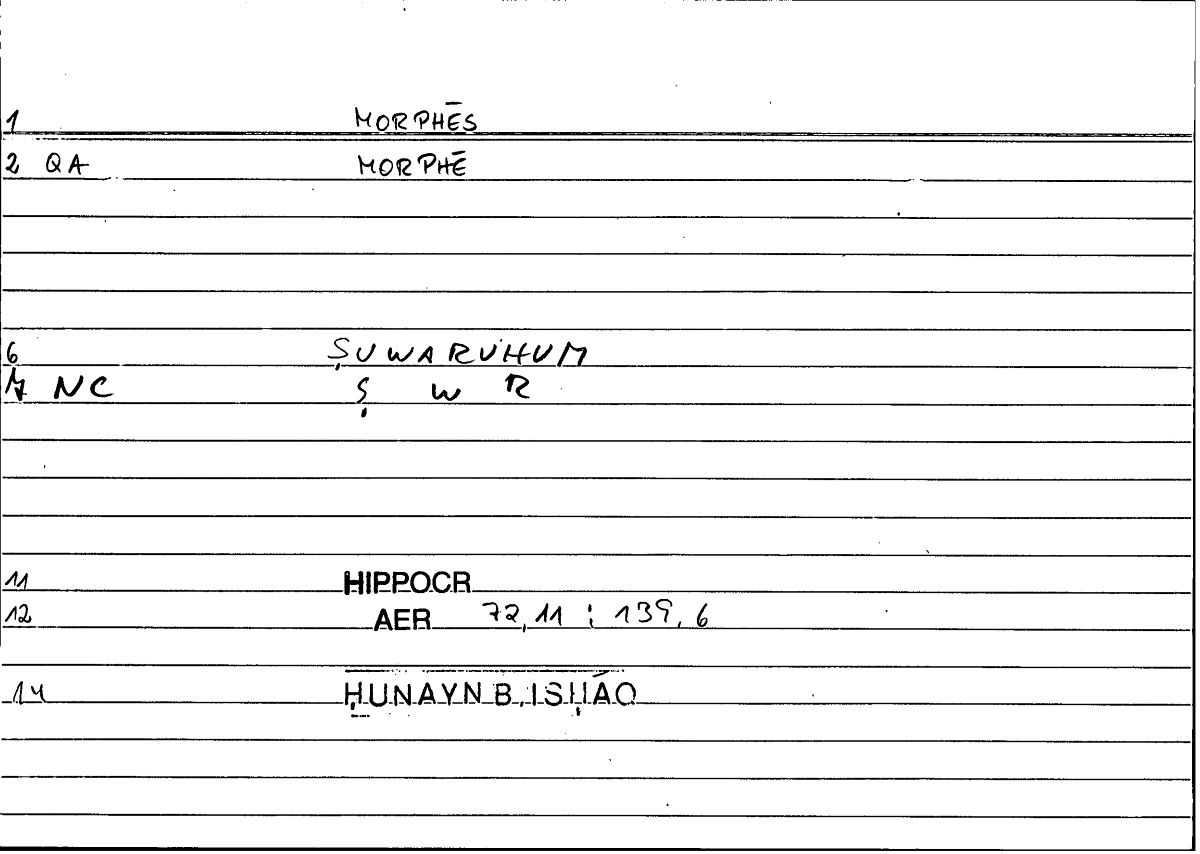 1 MORPHĒS
2 QA MORPHĒ
6 ṢUWARUHUM
7 NC Ṣ W R
11 HIPPOCR
12 AER 72,11 ; 139,6
14 ḤUNAYN B. ISḤĀQ